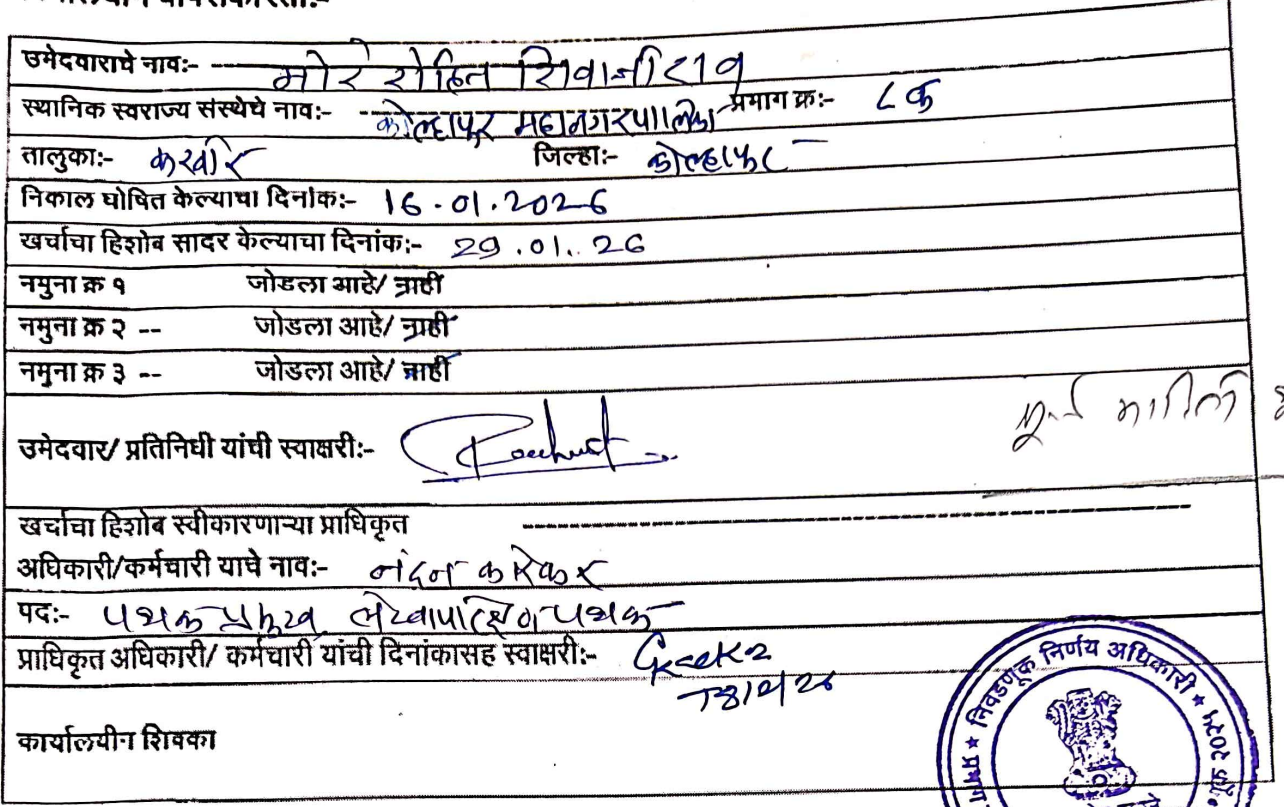 उमेदवाराचे नाव:- मोरे रोहित शिवाजीराव
स्थानिक स्वराज्य संस्थेचे नाव:- कोल्हापूर महानगरपालिका प्रभाग क्र:- ८ क
तालुका:- करवीर जिल्हा:- कोल्हापूर
निकाल घोषित केल्याचा दिनांक:- 16.01.2026
खर्चाचा हिशोब सादर केल्याचा दिनांक:- 29.01.26
नमुना क्र १ जोडला आहे/ नाही
नमुना क्र २ -- जोडला आहे/ नाही
नमुना क्र ३ -- जोडला आहे/ नाही
उमेदवार/ प्रतिनिधी यांची स्वाक्षरी:-
खर्चाचा हिशोब स्वीकारणाऱ्या प्राधिकृत
अधिकारी/कर्मचारी याचे नाव:- नंदन कारेकर
पद:- पथक प्रमुख लेखापरिक्षण पथक
प्राधिकृत अधिकारी/ कर्मचारी यांची दिनांकासह स्वाक्षरी:-
कार्यालयीन शिक्का
निवडणूक निर्णय अधिकारी